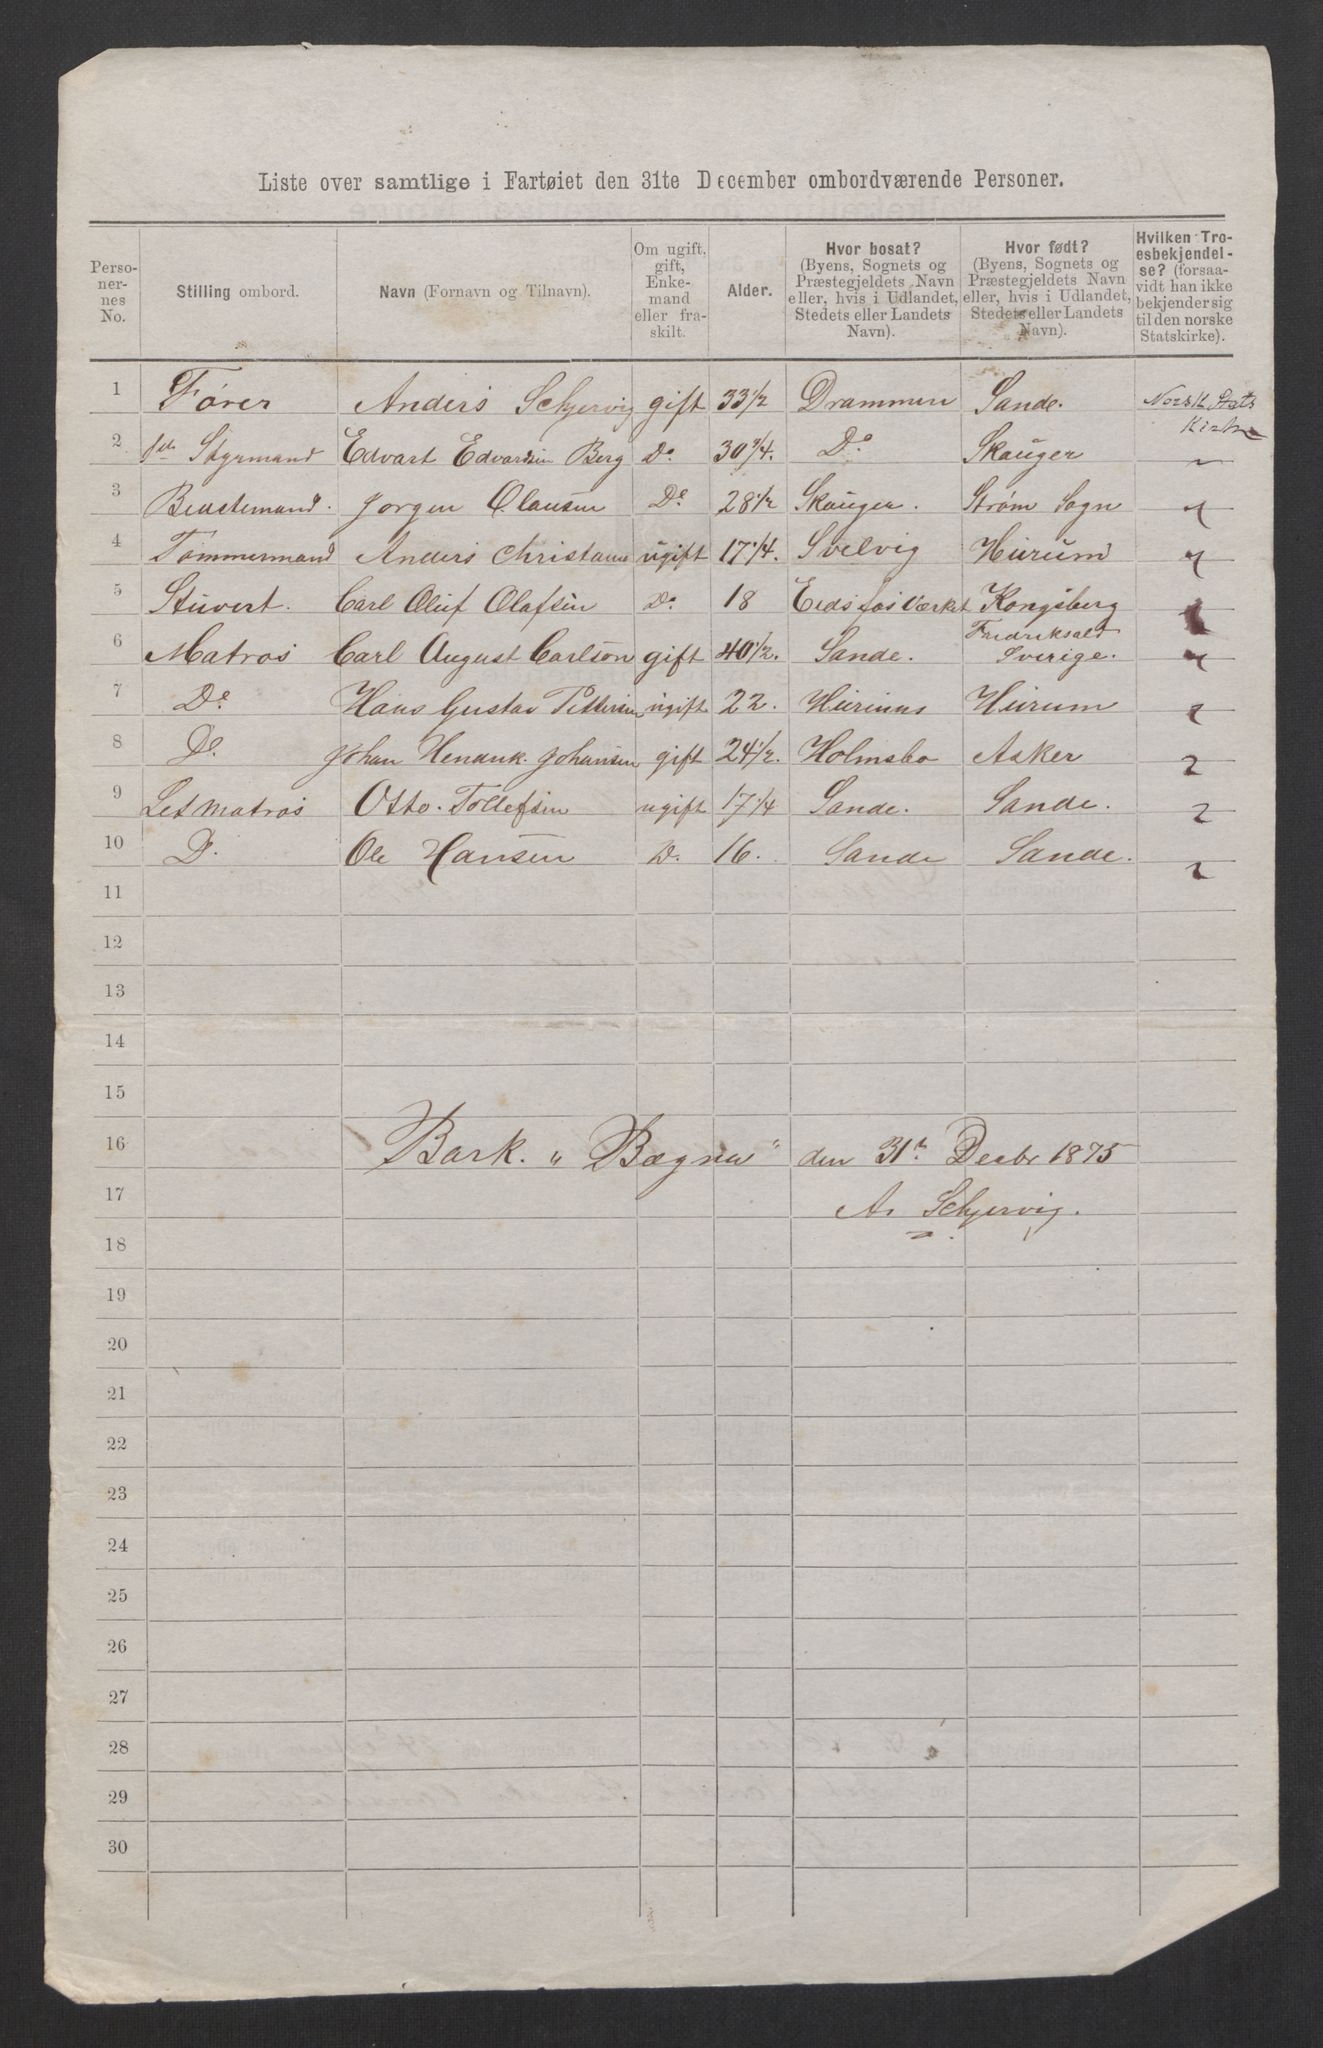 Liste over samtlige i Fartøiet den 31te December ombordværende Personer.
Perso-
ner-
nes
No.
Stilling ombord.
Navn (Fornavn og Tilnavn).
Om ugift,
gift,
Enke-
mand
eller fra-
skilt.
Alder.
Hvor bosat?
(Byens, Sognets og
Præstegjeldets Navn
eller, hvis i Udlandet,
Stedets eller Landets
Navn).
Hvor født?
(Byens, Sognets og
Præstegjeldets Navn
eller, hvis i Udlandet,
Stedets eller Landets
Navn).
Hvilken Tro-
esbekjendel-
se? (forsaa-
vidt han ikke
bekjender sig
til den norske
Statskirke).
1 Fører Anders Schjervig gift 33 1/2 Drammen Sande. Norsk Stats
Kirke
2 Styrmand Edvart Edvardsen Berg Do 30 3/4. Do Skauger "
3 Jørgen Olausen Do 28 1/2 Skauger. Strøm Sogn "
4 Tømmermand Anders Christiansen ugift 17 1/4. Svelvig Hurum "
5 Stuvert. Carl Oluf Olafsen Do 18 Eidsfos Værket Kongsberg "
6 Matros Carl August Carlson gift 40 1/2. Sande. Fredriksald
Sverige. "
7 Do Hans Gustav Pettersen ugift 22. Hurum "
8 Do Johan Hendrik Johansen gift 24 1/2. Holmsbo Asker "
9 Let matros Otto Tollefsen ugift 17 1/4 Sande. Sande. "
10 Do. Ole Hansen Do. 16. Sande Sande. "
11
12
13
14
15
16 Bark. "Bægna" den 31te Decbr 1875
17 A. Schjervig.
18
19
20
21
22
23
24
25
26
27
28
29
30